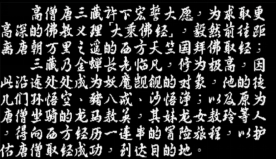 高僧唐三藏许下宏誓大愿，为求取更
高深的佛教义理"大乘佛经"，毅然前往距
离唐朝万里之遥的西方天竺国拜佛取经；
三藏乃金蝉长老临凡，修为极高，因
此沿途处处成为妖魔觊觎的对象，他的徒
儿们孙悟空、猪八戒、沙悟净；以及原为
唐僧坐骑的龙马敖英，其妹龙女敖玲等人
，得向西方经历一连串的冒险旅程，以护
佑唐僧取经成功，到达目的地。